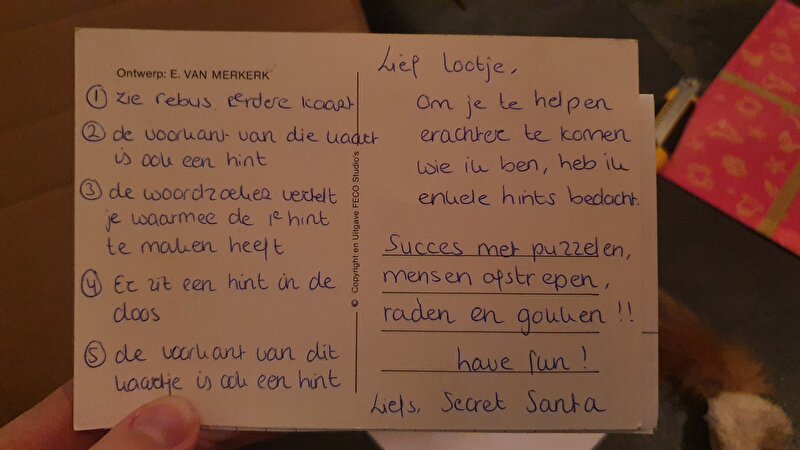 Ontwerp: E. VAN MERKERK
① zie rebus eerdere kaart
② de voorkant van die kaart
is ook een hint
③ de woordzoeker vertelt
je waarmee de 1e hint
te maken heeft
④ Er zit een hint in de
doos
⑤ de voorkant van dit
kaartje is ook een hint
© Copyright en Uitgave FECO Studio's
Lief lootje,
Om je te helpen
erachter te komen
wie ik ben, heb ik
enkele hints bedacht.
Succes met puzzelen,
mensen afstrepen,
raden en gokken !!
have fun !
Liefs, Secret Santa